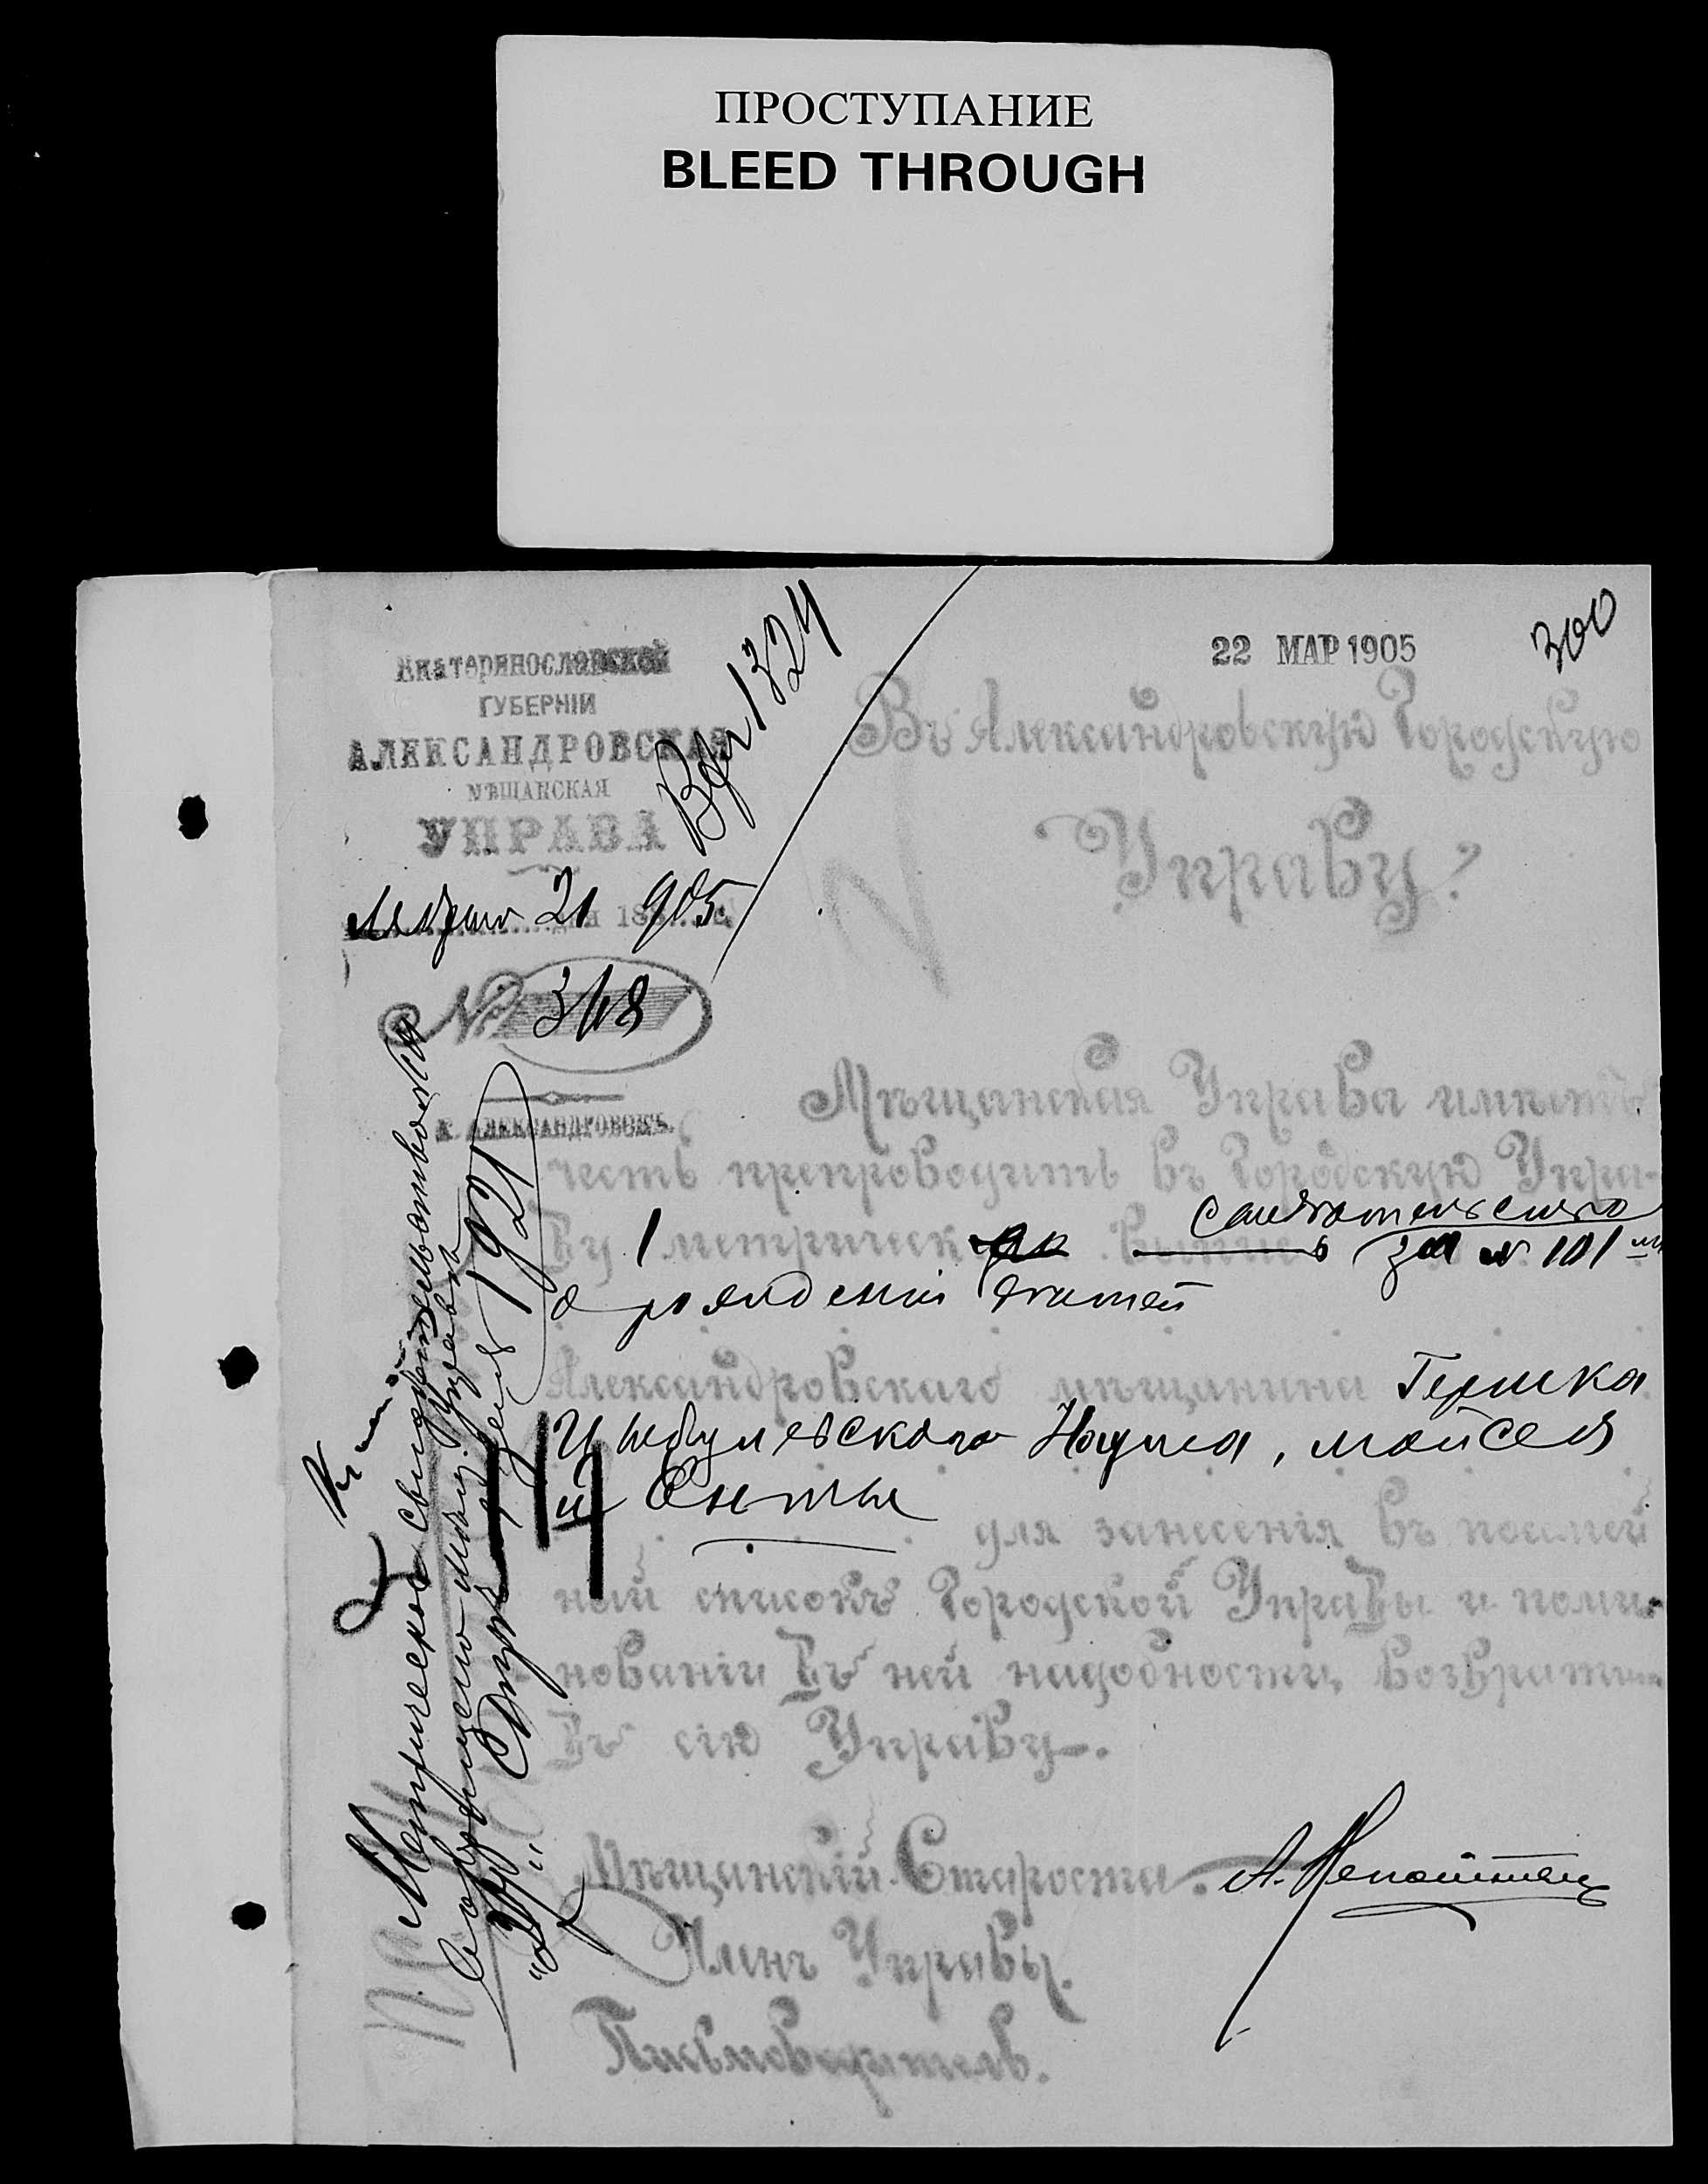 ПРОСТУПАНИЕ
BLEED THROUGH
22 МАР 1905
300
Екатеринославской
ГУБЕРНІИ
АЛЕКСАНДРОВСКАЯ
МѢЩАНСКАЯ
УПРАВА
Марта 21 дня 1905
№ 348
Г. АЛЕКСАНДРОВСКЪ.
1324
Въ Александровскую Городскую
Управу.
Мѣщанская Управа имѣетъ
честь препроводить въ Городскую Упра-
ву 1 метрическ
свидетельство
за № 101
о рождении детей
Александровскаго мѣщанина Гершка
Цыбулевского Наума, Мойсея
и
для занесенія въ посмей
ный списокъ Городской Управы и поми-
нованіи въ ней надобности, возврати
въ сію Управу.
Мѣщанскій Староста.
Членъ Управы.
Письмоводитель.
Метрическое свидетельство
1921